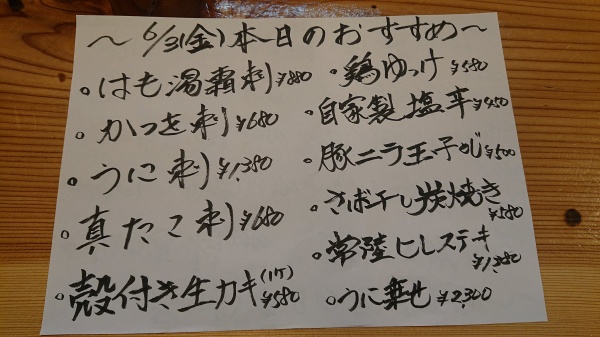 ～6/31(金)本日のおすすめ～
・はも湯霜刺¥880
・かつを刺¥680
・うに刺¥1,380
・真たこ刺¥680
・殻付き生カキ(1ケ)¥580
・鶏ゆっけ¥580
・自家製塩辛¥450
・豚ニラ玉子とじ¥500
・さば干し炭焼き¥580
・常陸ヒレステーキ¥1,380
・うに乗せ¥2,300